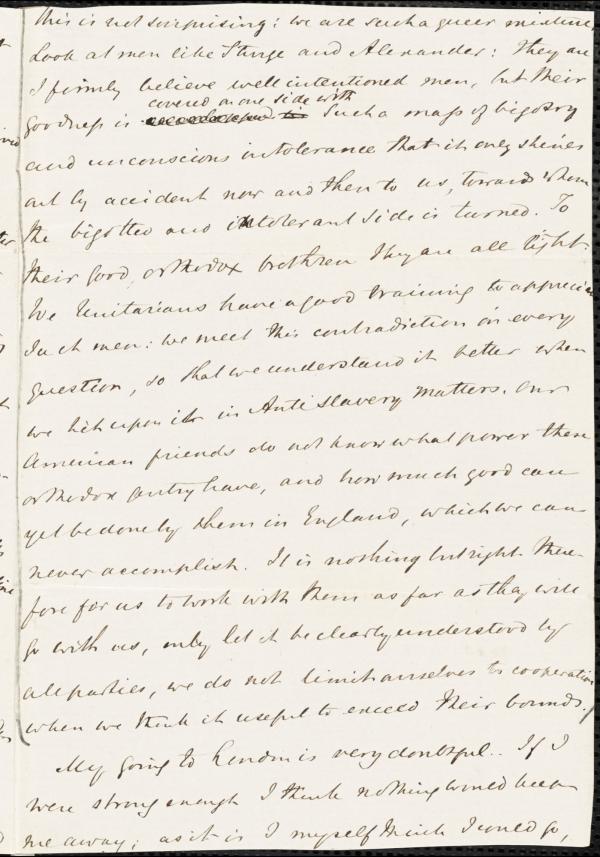 this is not surprising: we are such a queer mixture.
Look at men like Sturge and Alexander: they are
I firmly believe well intentioned men, but their
covered on one side with
goodness is such a mass of bigotry
and unconscious intolerance that it only shines
out by accident now and then to us, towards whom
the bigotted and intolerant side is turned. To
their good, orthodox brethren they are all light.
We Unitarians have a good training to appreciate
such men: we meet this contradiction in every
question, so that we understand it better when
we hit upon it in Anti Slavery matters. Our
American friends do not know what power these
orthodox gentry have, and how much good can
yet be done by them in England, which we can
never accomplish. It is nothing but right there-
fore for us to work with them as far as they will
go with us, only let it be clearly understood by
all parties, we do not limit ourselves to cooperation
when we think it useful to exceed their bounds.
My going to London is very doubtful.. If I
were strong enough I think nothing would keep
me away; as it is I myself think I could go,